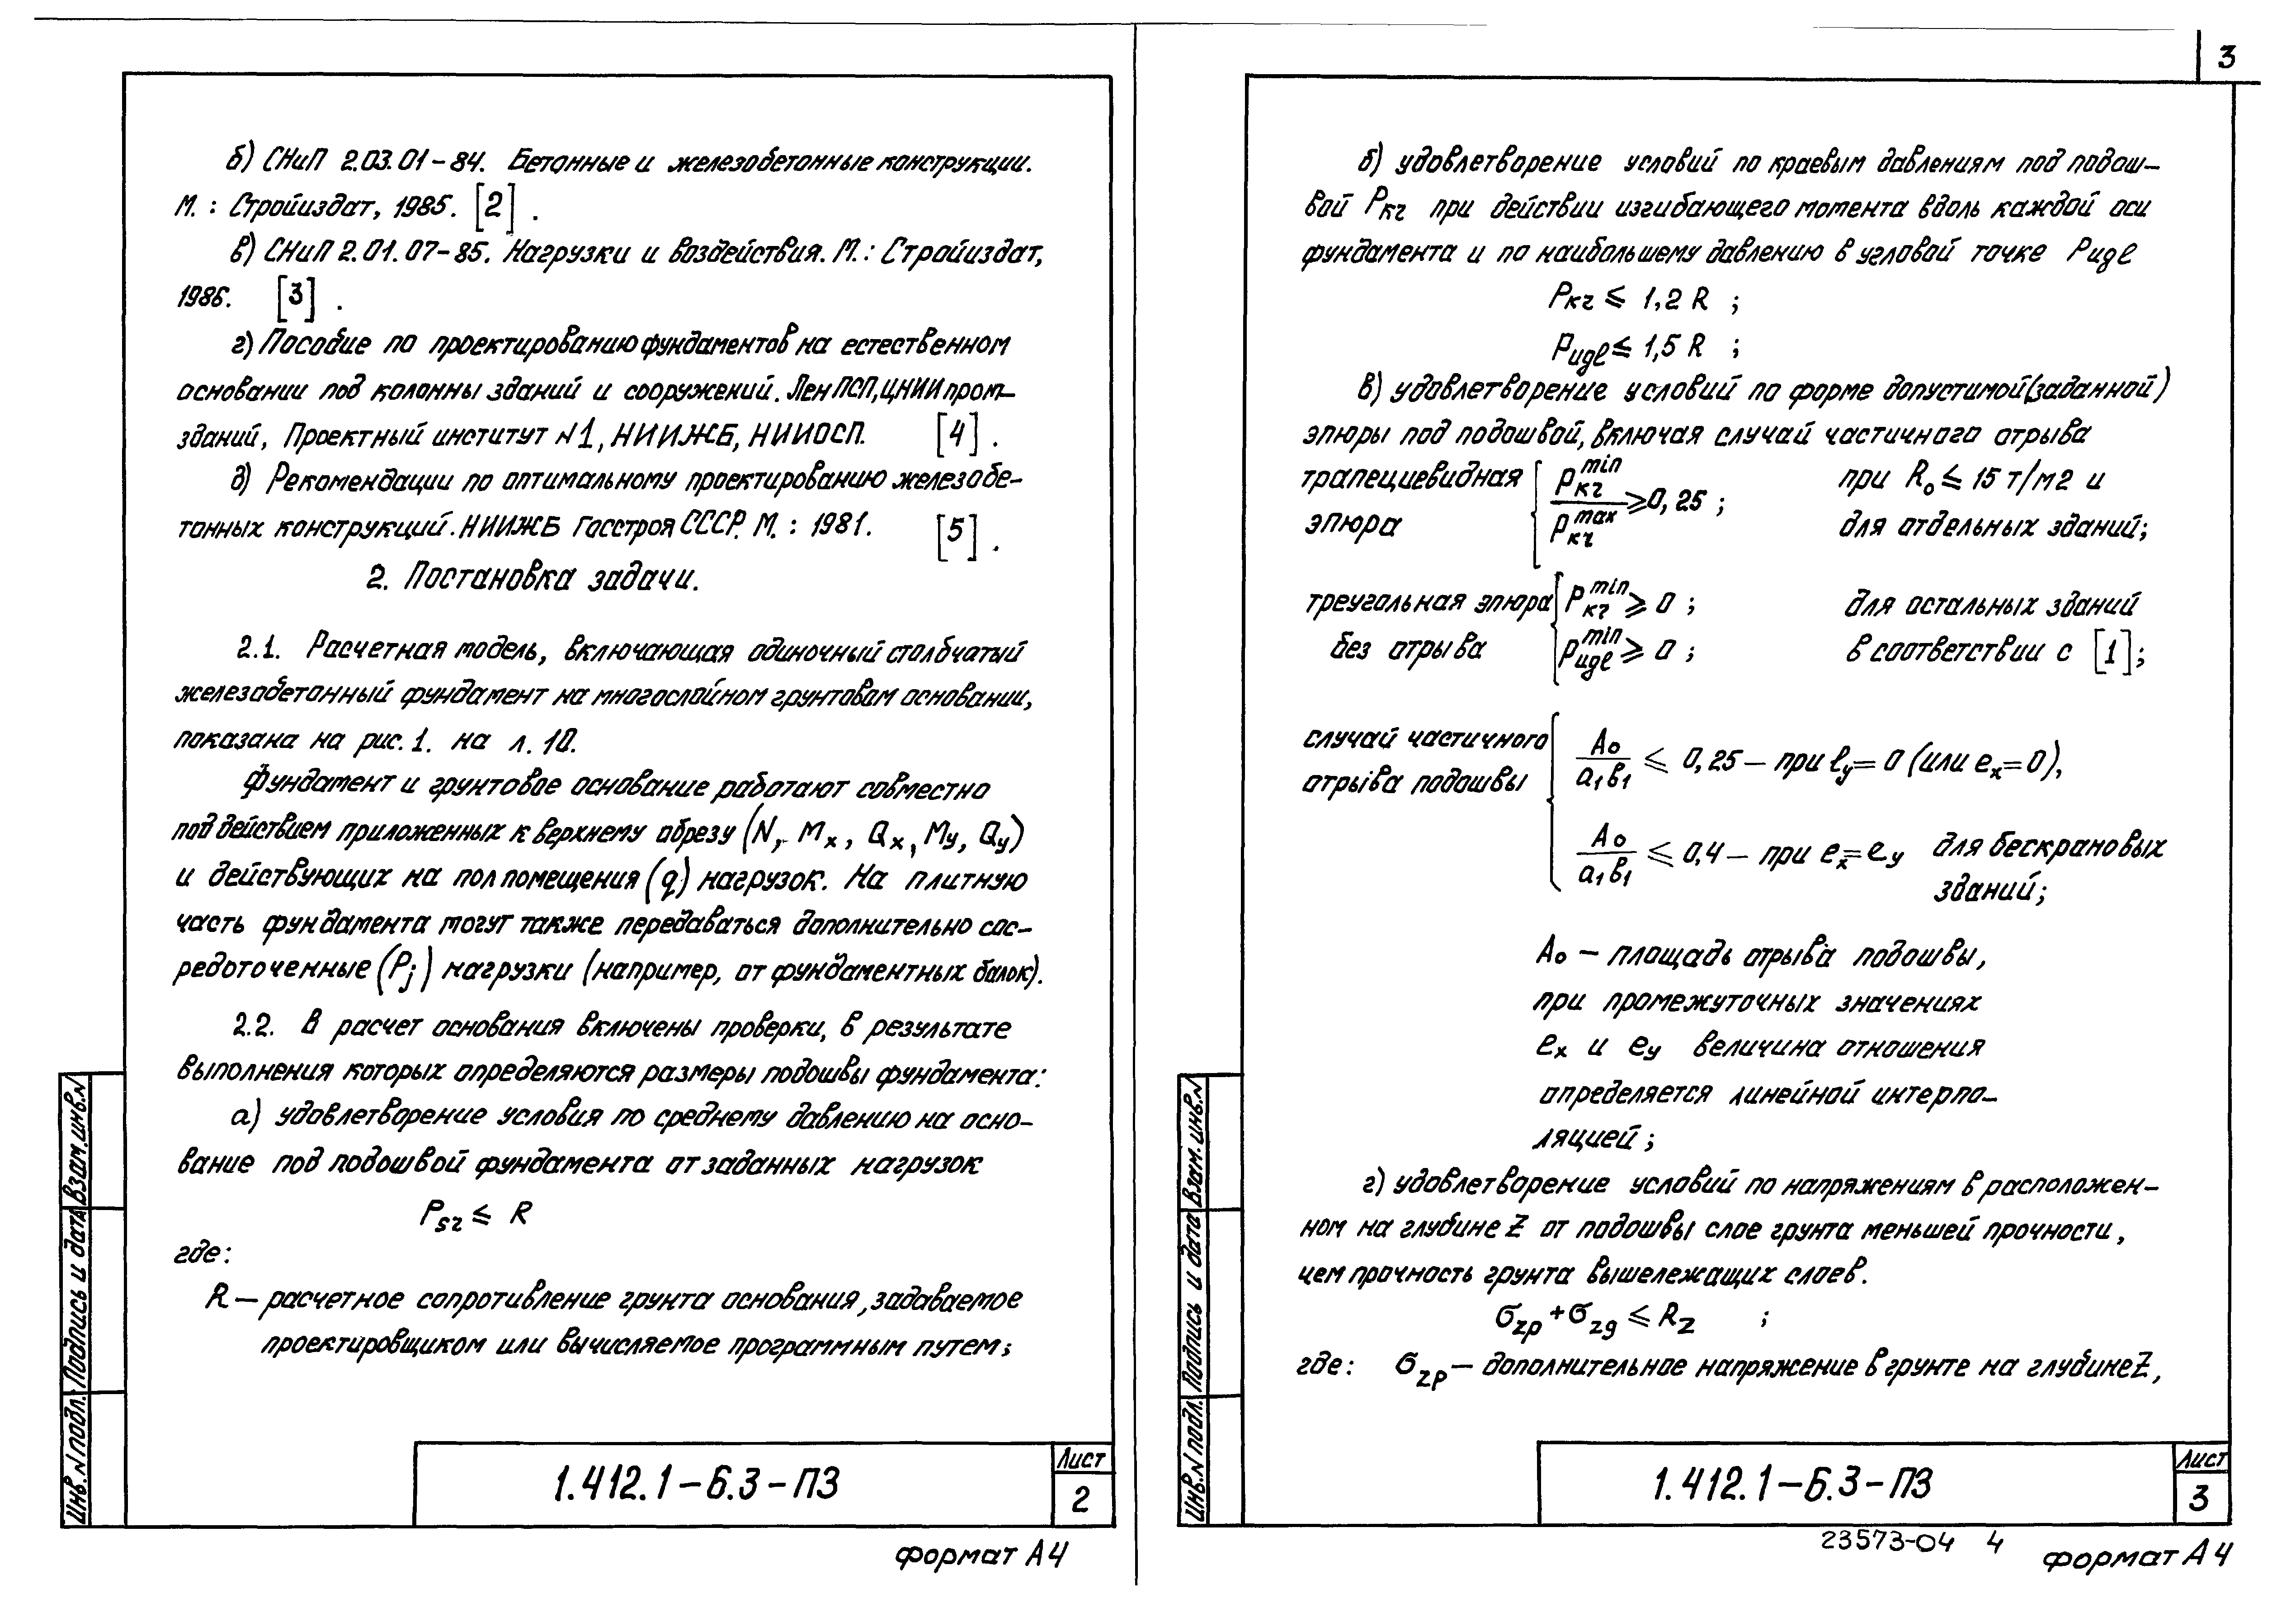 б) СНиП 2.03.01-84. Бетонные и железобетонные конструкции.
М.: Стройиздат, 1985. [2].
в) СНиП 2.01.07-85. Нагрузки и воздействия. М.: Стройиздат,
1986. [3].
г) Пособие по проектированию фундаментов на естественном
основании под колонны зданий и сооружений. ЛенПСП, ЦНИИпром-
зданий, Проектный институт N1, НИИЖБ, НИИОСП. [4].
д) Рекомендации по оптимальному проектированию железобе-
тонных конструкций. НИИЖБ Госстроя СССР. М.: 1981. [5].
2. Постановка задачи.
2.1. Расчетная модель, включающая одиночный столбчатый
железобетонный фундамент на многослойном грунтовом основании,
показана на рис. 1. на л. 10.
Фундамент и грунтовое основание работают совместно
под действием приложенных к верхнему обрезу (N, Mx, Qx, My, Qy)
и действующих на пол помещения (q) нагрузок. На плитную
часть фундамента могут также передаваться дополнительно сос-
редоточенные (Pj) нагрузки (например, от фундаментных балок).
2.2. В расчет основания включены проверки, в результате
выполнения которых определяются размеры подошвы фундамента:
а) удовлетворение условия по среднему давлению на осно-
вание под подошвой фундамента от заданных нагрузок
Psr ≤ R
где:
R — расчетное сопротивление грунта основания, задаваемое
проектировщиком или вычисляемое программным путем;
Инв. N подл. Подпись и дата Взам. инв. N
1.412.1-Б.3-ПЗ
Лист
2
формат А4
3
б) удовлетворение условий по краевым давлениям под подош-
вой Pкr при действии изгибающего момента вдоль каждой оси
фундамента и по наибольшему давлению в угловой точке Pugl
Pкr ≤ 1,2 R ;
Pugl ≤ 1,5 R ;
в) удовлетворение условий по форме допустимой (заданной)
эпюры под подошвой, включая случай частичного отрыва
трапециевидная эпюра { Pкr min / Pкr max ≥ 0,25 ; при R₀ ≤ 15 т/м2 и
для отдельных зданий;
треугольная эпюра { Pкr min ≥ 0 ; для остальных зданий
без отрыва Pugl min ≥ 0 ; в соответствии с [1];
случай частичного { A₀ / a₁b₁ ≤ 0,25 — при ℓy = 0 (или ex = 0),
отрыва подошвы
A₀ / a₁b₁ ≤ 0,4 — при ex = ey для бескрановых
зданий;
A₀ — площадь отрыва подошвы,
при промежуточных значениях
ex и ey величина отношения
определяется линейной интерпо-
ляцией;
г) удовлетворение условий по напряжениям в расположен-
ном на глубине Z от подошвы слое грунта меньшей прочности,
чем прочность грунта вышележащих слоев.
σzp + σzg ≤ Rz ;
где: σzp — дополнительное напряжение в грунте на глубине Z,
Инв. N подл. Подпись и дата Взам. инв. N
1.412.1-Б.3-ПЗ
Лист
3
23573-04 4
формат А4